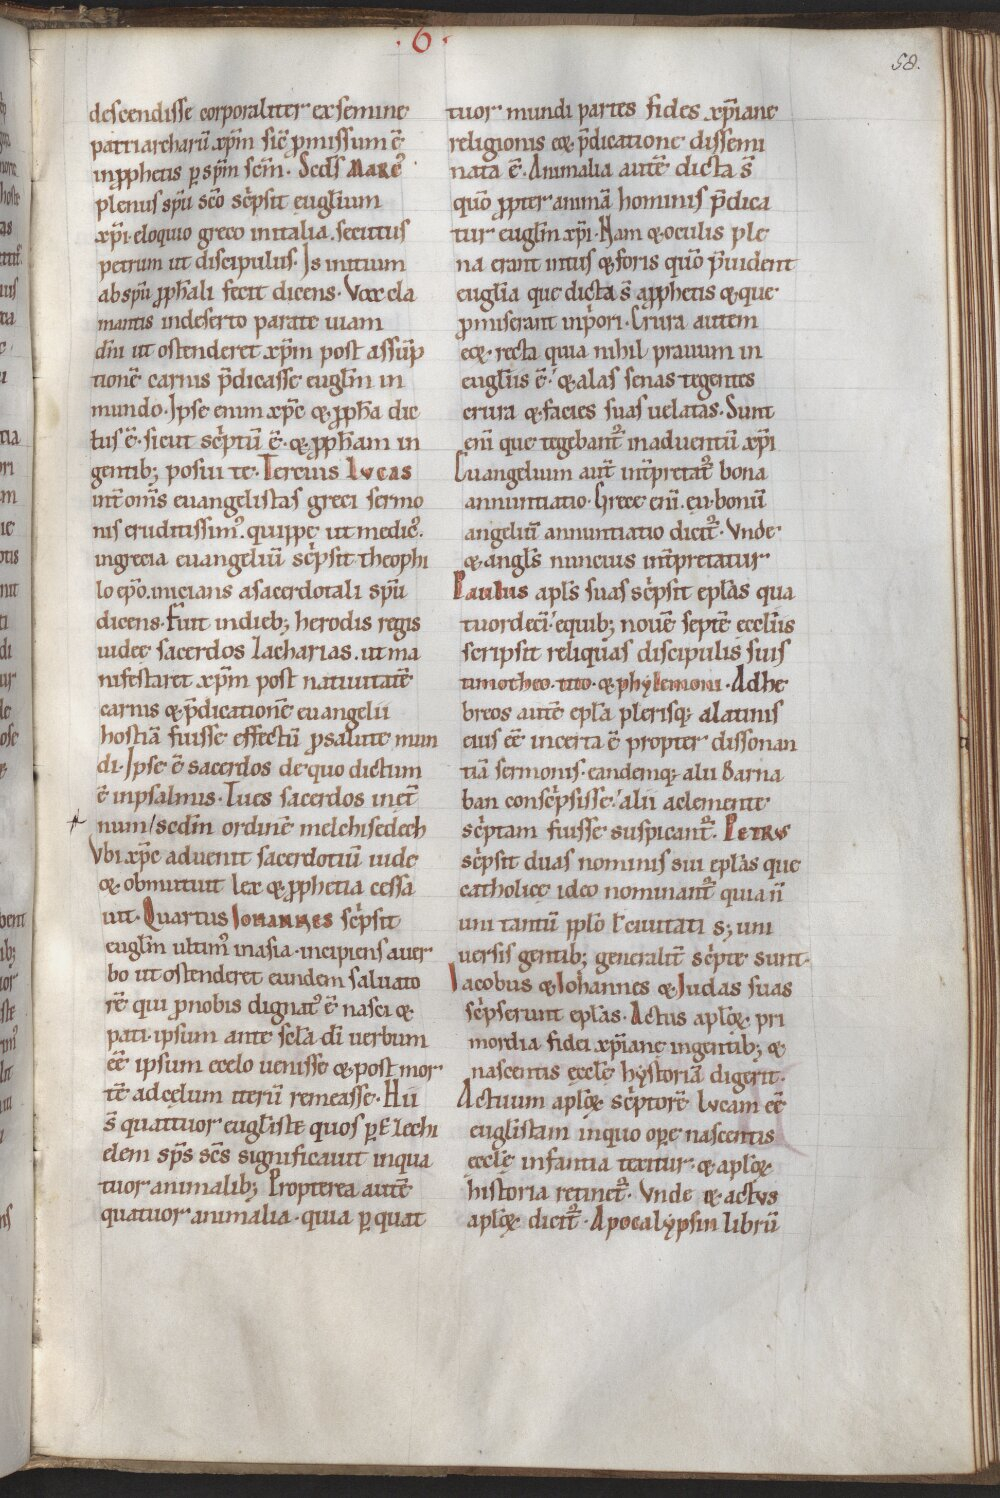 ·6·
58.
descendisse corporaliter exsemine
patriarcharū xp̄m sic̄ p̱missum ē
inp̱phetis ꝑ sp̄m sc̄m. Sc̄ds MARC᾽
plenus sp̄u sc̄o sc̓psit euglīum
xp̄i. eloquio greco initalia. secutus
petrum ut discipulus. Is initium
absp̄u p̱ph̄ali fecit dicens. Vox cla
mantis indeserto parate uiam
dn̄i ut ostenderet xp̄m post assūp
tionē carnis p̄dicasse eugl̄m in
mundo. Ipse enim xp̄c & p̱ph̄a dic
tus ē. sicut sc̓ptū ē. & p̱ph̄am in
gentib; posui te. Tercius LVCAS
int̄ om̄s euangelistas greci sermo
nis eruditissim᾽. quippe ut medic᾽.
ingrecia euangeliū sc̓psit theophi
lo ep̄o. inicians asacerdotali sp̄u
dicens. Fuit indieb; herodis regis
iudeę sacerdos Zacharias. ut ma
nifestaret xp̄m post natiuitatē
carnis & p̄dicationē euangelii
hostiā fuisse effectū p̱salute mun
di. Ipse ē sacerdos de quo dictum
ē inpsalmis. Tu es sacerdos in et̄
num / scd̄m ordinē melchisedech
Vbi xp̄c aduenit sacerdotiū iude
& obmutuit lex & p̱phetia cessa
uit. Quartus IOHANNES sc̓psit
eugl̄m ultim᾽ inasia. incipiens auer
bo ut ostenderet eundem saluato
rē qui p̱nobis dignat᾽ ē nasci &
pati. ipsum ante scl̄a dī uerbum
eē ipsum ecelo uenisse & post mor
tē adcęlum iterū remeasse. Hii
s̄ quattuor eugl̄istę quos ꝑ Ezechi
elem sp̄s sc̄s significauit inqua
tuor animalib; Propterea autē
quatuor animalia. quia ꝑ quat
tuor mundi partes fides xp̄iane
religionis eoꝝ p̄dicatione dissemi
nata ē. Animalia autē dicta s̄
quō p̱pter animā hominis p̄dica
tur eugl̄m xp̄i. Nam & oculis ple
na erant intus & foris quō p̄uident
eugl̄ia que dicta s̄ ap̱phetis & que
p̱miserant inp̓ori. Crura autem
eoꝝ recta quia nihil prauum in
eugl̄iis ē. & alas senas tegentes
crura & facies suas uelatas. Sunt
eni̅ que tegebant᾽ inaduentū xp̄i
Euangelium aut̄ int̄pretat᾽ bona
annuntiatio. Grece eni̅. eu. bonū
angeliū annuntiatio dicit᾽. Vnde
& angl̄s nuncius int̄pretatur
Paulus apl̄s suas sc̓psit epl̄as qua
tuordecī. equib; nouē septē eccl̄iis
scripsit reliquas discipulis suis
timotheo. tito. & phylemoni. Adhe
breos autē epl̄a plerisq; alatinis
eius eē incerta ē propter dissonan
tiā sermonis. eandemq; alii Barna
ban consc̓psisse. alii aclemente
sc̓ptam fuisse suspicant᾽. PETRVS
sc̓psit duas nominis sui epl̄as que
catholicę ideo nominant᾽ quia n̄
uni tantū pp̱lo ł ciuitati s; uni
uersis gentib; generalit̄ sc̓ptę sunt.
Iacobus & Iohannes & Judas suas
sc̓pserunt epl̄as. Actus apl̄oꝝ pri
mordia fidei xp̄iane ingentib; &
nascentis ęccl̄ę hystoriā digerit.
Actuum apl̄oꝝ sc̓ptorē lucam eē
eugl̄istam inquo oꝑe nascentis
ęccl̄ę infantia texitur. & apl̄oꝝ
historia retinet᾽. Vnde & actvs
apl̄oꝝ dicit᾽. Apocalypsin librū